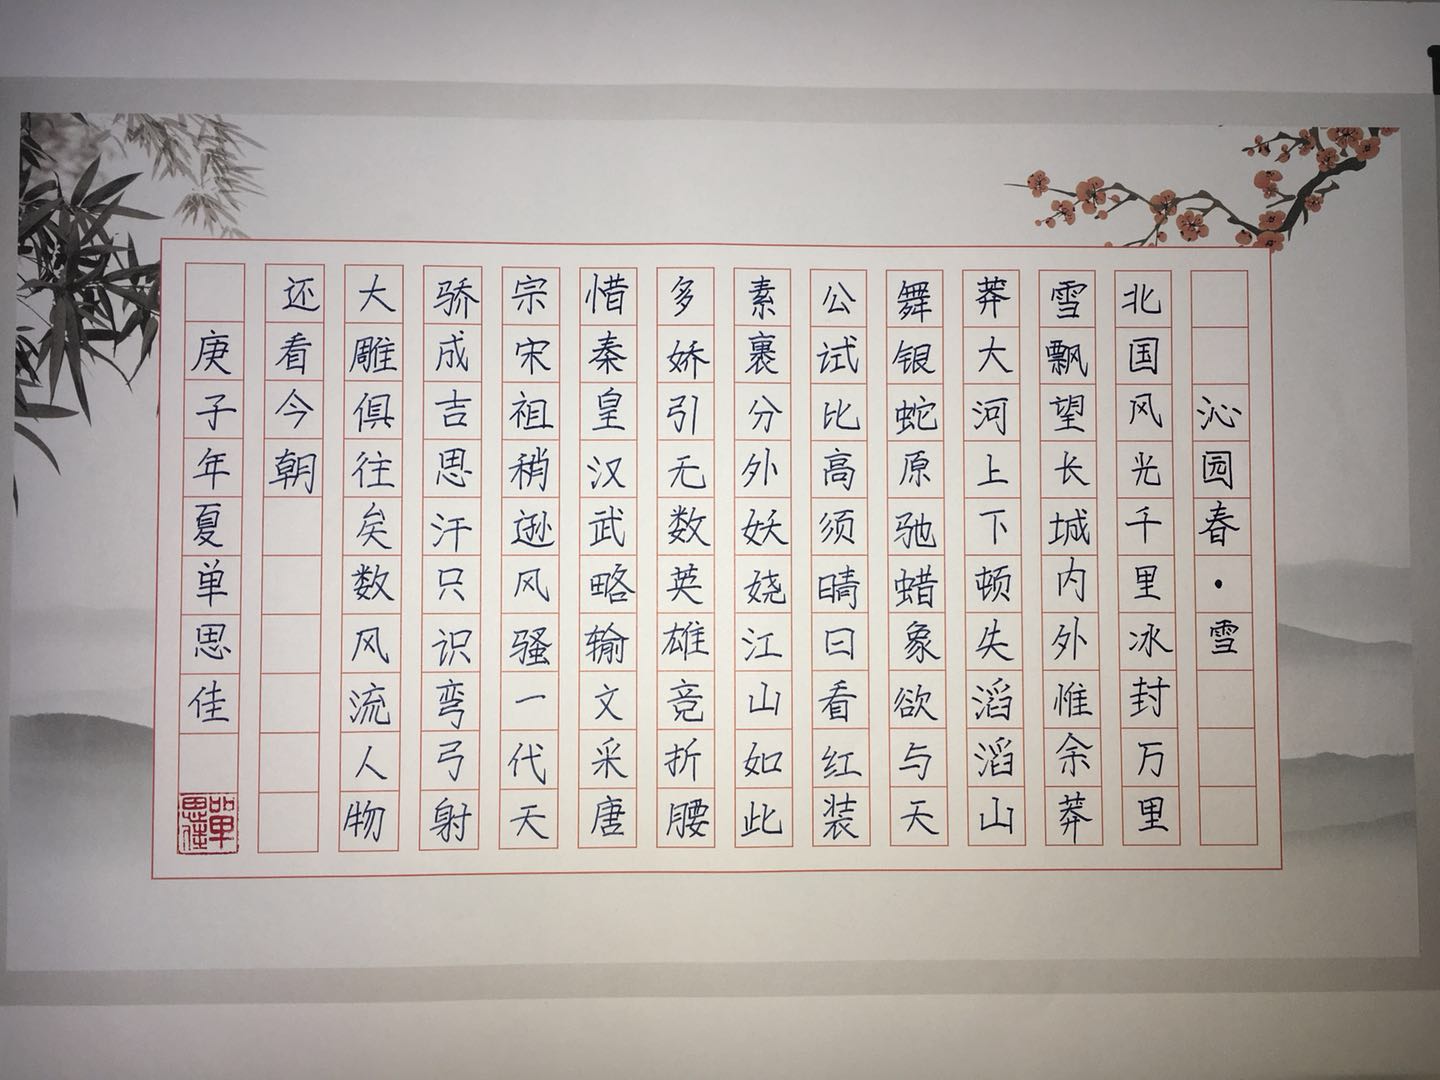 沁园春·雪
北国风光千里冰封万里
雪飘望长城内外惟余莽
莽大河上下顿失滔滔山
舞银蛇原驰蜡象欲与天
公试比高须晴日看红装
素裹分外妖娆江山如此
多娇引无数英雄竞折腰
惜秦皇汉武略输文采唐
宗宋祖稍逊风骚一代天
骄成吉思汗只识弯弓射
大雕俱往矣数风流人物
还看今朝
庚子年夏单思佳
單思佳